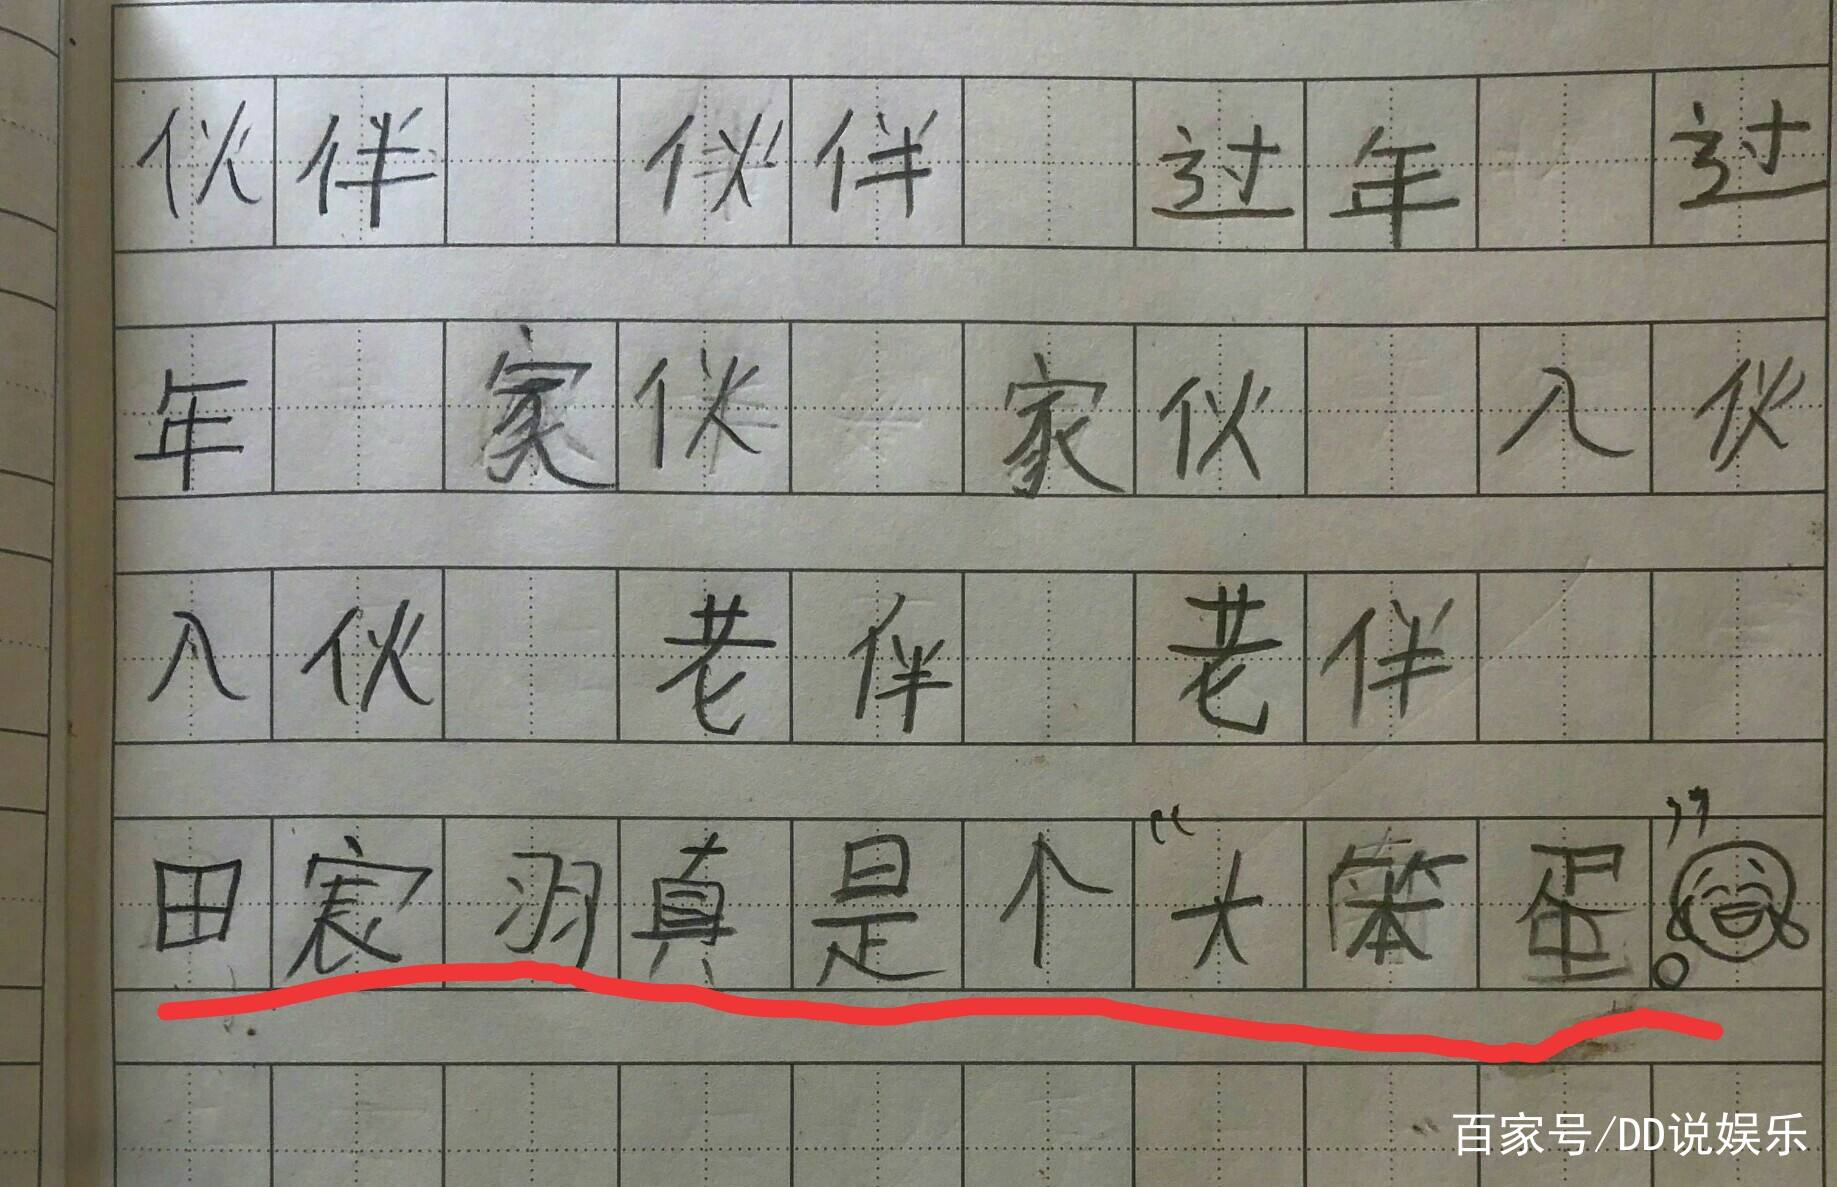 伙伴 伙伴 过年 过
年 家伙 家伙 入伙
入伙 老伴 老伴
田宸羽真是个“大笨蛋”。
百家号/DD说娱乐